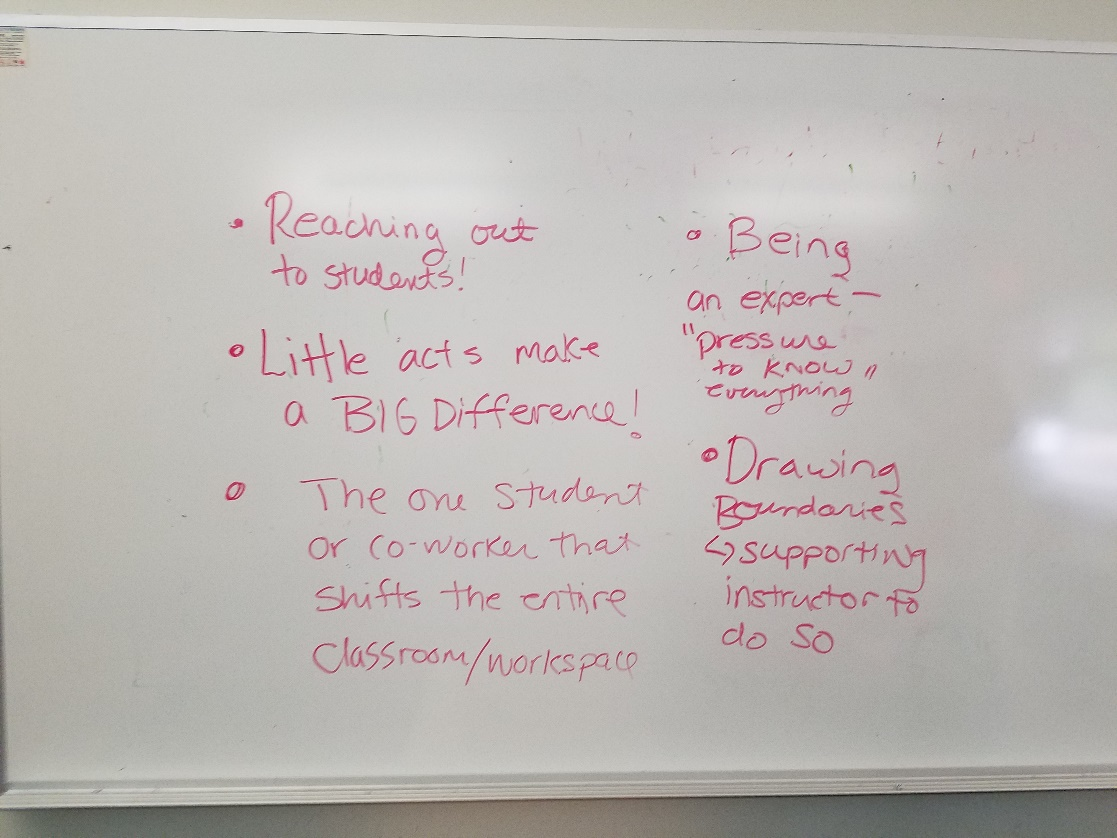 • Reaching out
to students!
• Little acts make
a BIG Difference!
• The one student
or co-worker that
shifts the entire
classroom/workspace
• Being
an expert —
"pressure
to KNOW
everything"
• Drawing
Boundaries
↳ supporting
instructor to
do so